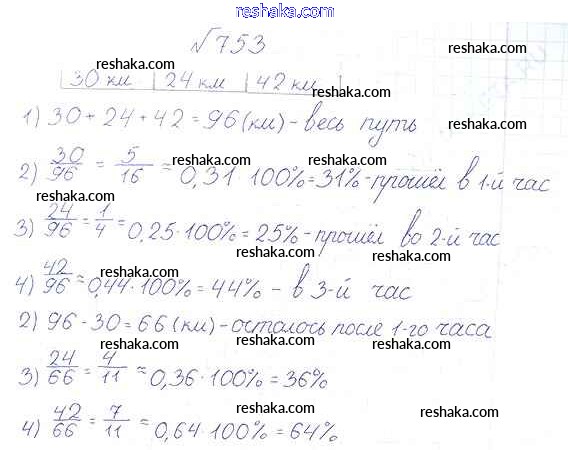 www.reshaka.com
√753
reshaka.com
30 км | 24 км | 42 км
reshaka.com
1) 30 + 24 + 42 = 96 (км) - весь путь
reshaka.com
2) 30/96 = 5/16 ≈ 0,31 · 100% = 31% - прошёл в 1-й час
reshaka.com reshaka.com
3) 24/96 = 1/4 = 0,25 · 100% = 25% - прошёл во 2-й час
reshaka.com reshaka.com
4) 42/96 ≈ 0,44 · 100% = 44% - в 3-й час
reshaka.com reshaka.com
2) 96 - 30 = 66 (км) - осталось после 1-го часа
reshaka.com reshaka.com
3) 24/66 = 4/11 ≈ 0,36 · 100% = 36%
reshaka.com reshaka.com
4) 42/66 = 7/11 ≈ 0,64 · 100% = 64%
reshaka.com reshaka.com